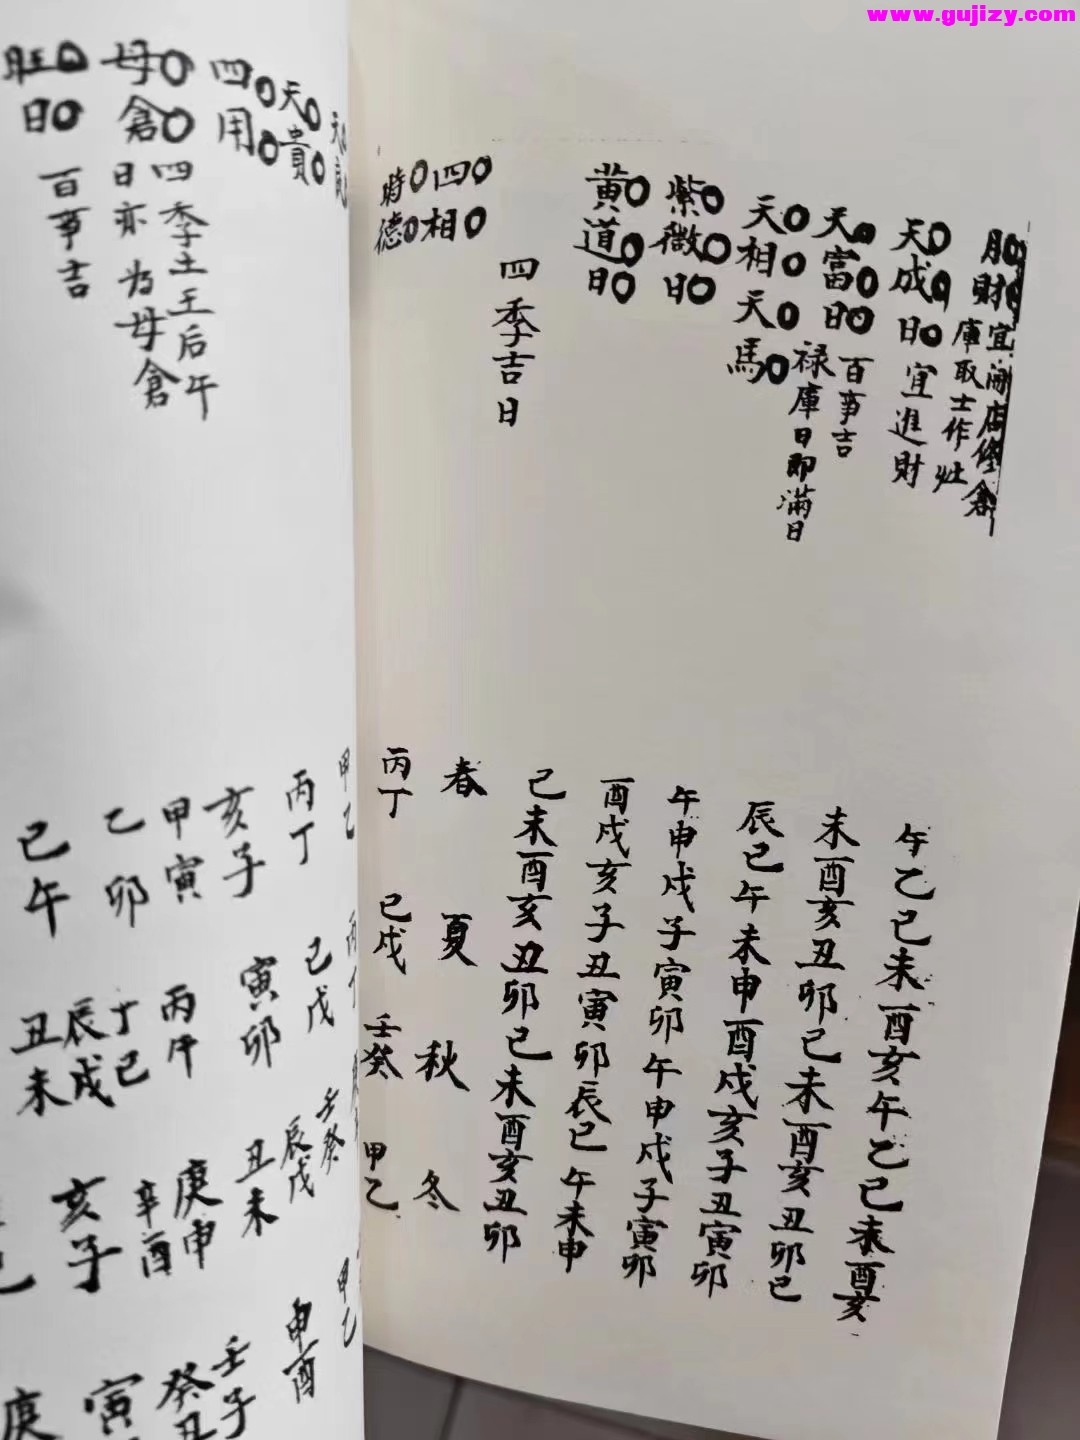 www.gujizy.com
月財 宜開店修倉
庫取土作灶
天成日 宜進財
天富日 百事吉
禄庫日即滿日
天相天馬
紫微日
黄道日
午乙巳未酉亥午乙巳未酉亥
未酉亥丑卯巳未酉亥丑卯巳
辰巳午未申酉戌亥子丑寅卯
午申戌子寅卯午申戌子寅卯
酉戌亥子丑寅卯辰巳午未申
巳未酉亥丑卯巳未酉亥丑卯
四季吉日
春 夏 秋 冬
四相
丙丁 己戌 壬癸 甲乙
時德
天貴
丙丁 己戌 壬癸 甲乙
四用
辰戌 申酉
母倉 四季土王后午
日亦为母倉
亥子 寅卯 丑未
旺日 百事吉
甲寅 丙午 庚申 壬子
乙卯 丁巳 辛酉 癸丑
辰戌
巳午 丑未 亥子 寅
庚